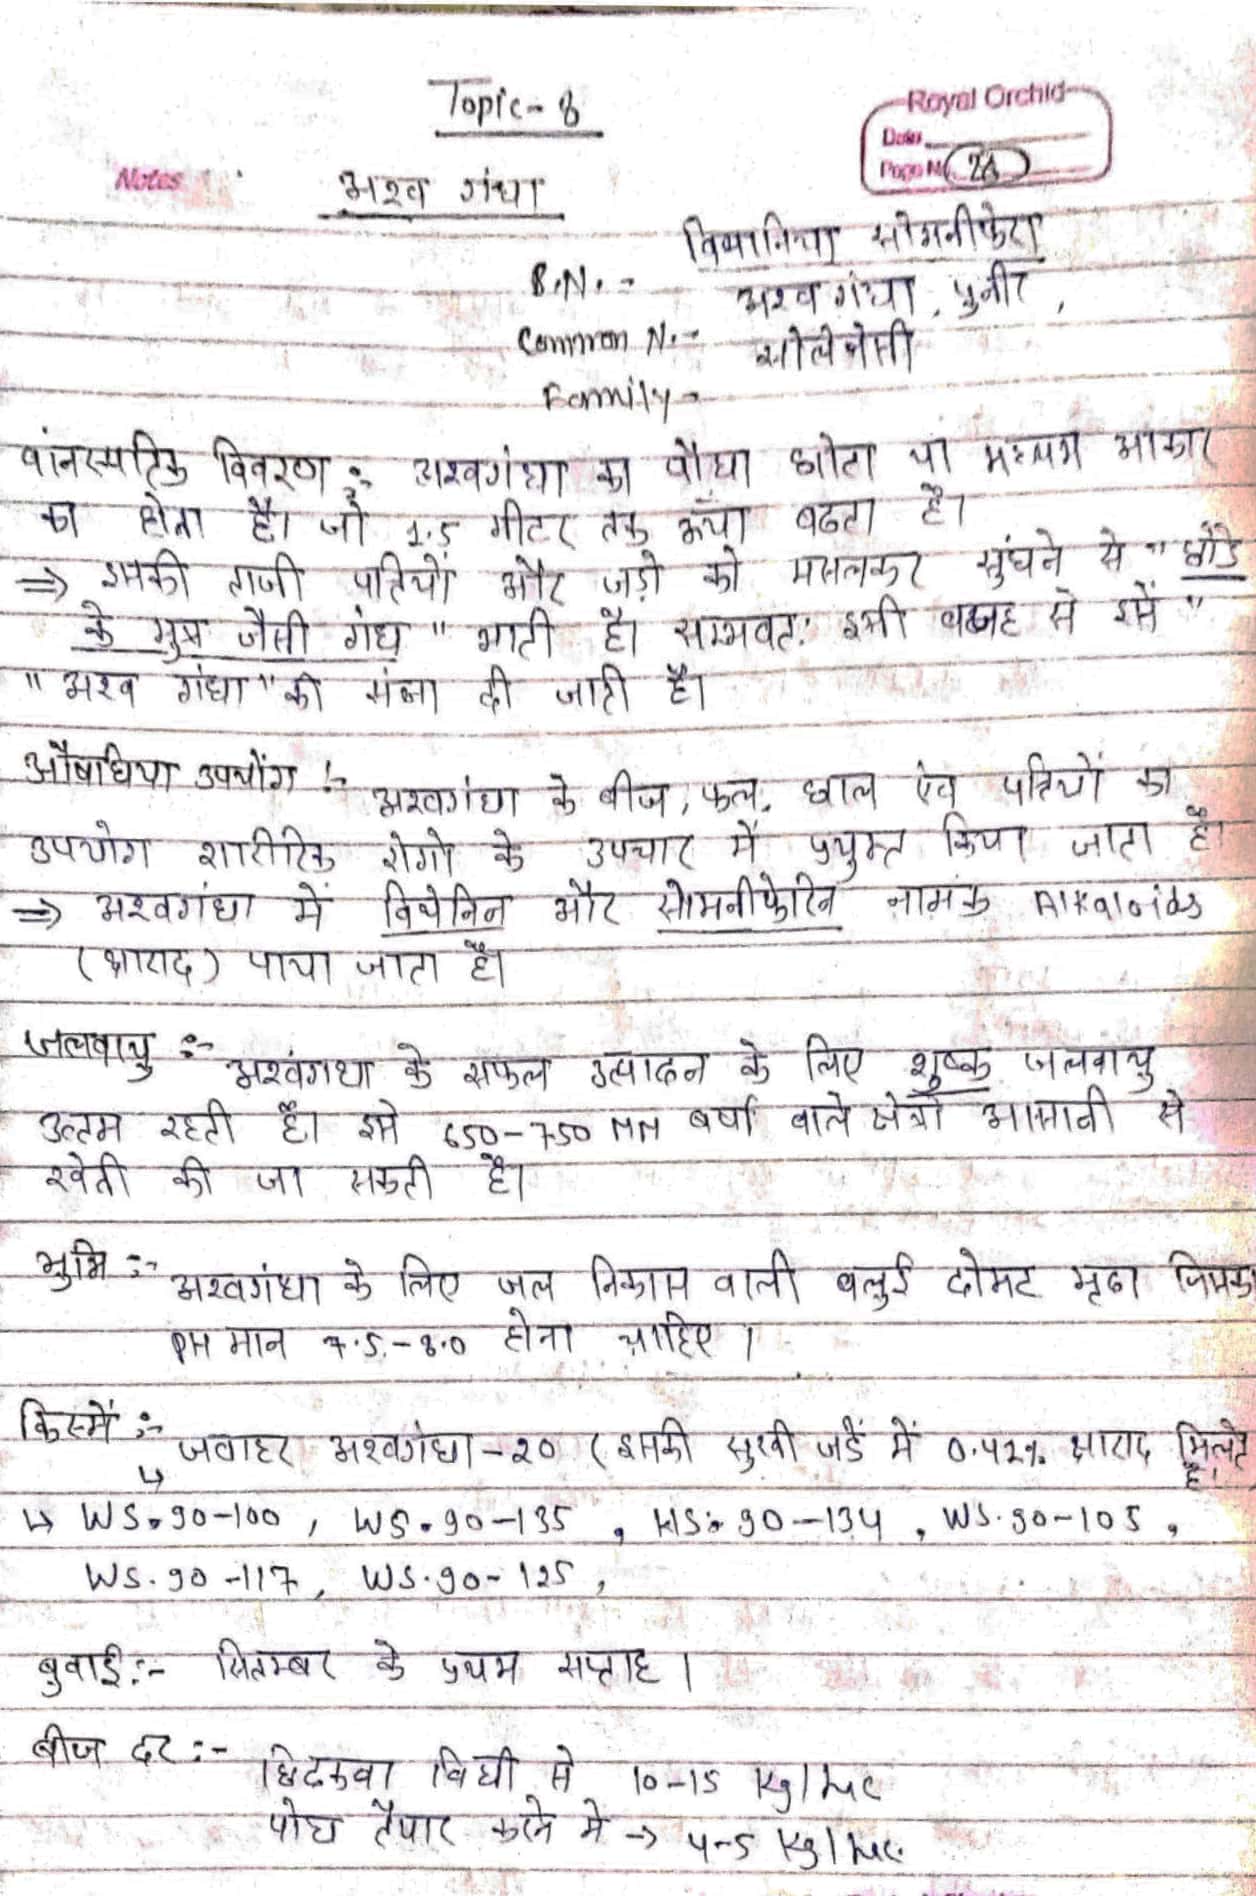 Topic - 8
Royal Orchid
Date
Page No 28
Notes
अश्व गंधा
विथानिया सोमनीफेरा
B.N. :-
अश्वगंधा, पुनीर,
Common N. :-
सोलेनेसी
Family -
वांनस्पतिक विवरण :- अश्वगंधा का पौधा छोटा या मध्यम आकार
का होता है। जो 1.5 मीटर तक ऊँचा बढता है।
⇒ इसकी ताजी पत्तियों और जड़ो को मसलकर सुंघने से "घोडे
के मुत्र जैसी गंध" आती है। सम्भवत: इसी वजह से इसें "
"अश्व गंधा" की संज्ञा दी जाती है।
औषधिया उपयोंग :- अश्वगंधा के बीज, फल, छाल एंव पत्तियों का
उपयोग शारीरिक रोगो के उपचार में प्रयुक्त किया जाता है।
⇒ अश्वगंधा में विथेनिन और सोमनीफेरिन नामक Alkaloids
(क्षाराद) पाया जाता है।
जलवायु :- अश्वंगधा के सफल उत्पादन के लिए शुष्क जलवायु
उत्तम रहती है। इसे 650-750 MM वर्षा वाले क्षेत्रो आसानी से
खेती की जा सकती है।
भुमि :- अश्वगंधा के लिए जल निकास वाली बलुई दोमट मृदा जिसका
PH मान 7.5-8.0 होना चाहिए।
किस्में :-
↳ जवाहर अश्वगंधा-20 (इसकी सुखी जडें में 0.42% क्षाराद मिलते है।
↳ WS.90-100, WS.90-135, WS.90-134, WS.90-105,
WS.90-117, WS.90-125,
बुवाई :- सितम्बर के प्रथम सप्ताह।
बीज दर :- छिटकवा विधी से 10-15 Kg/hec
पोध तैयार करने मे → 4-5 Kg/hec.